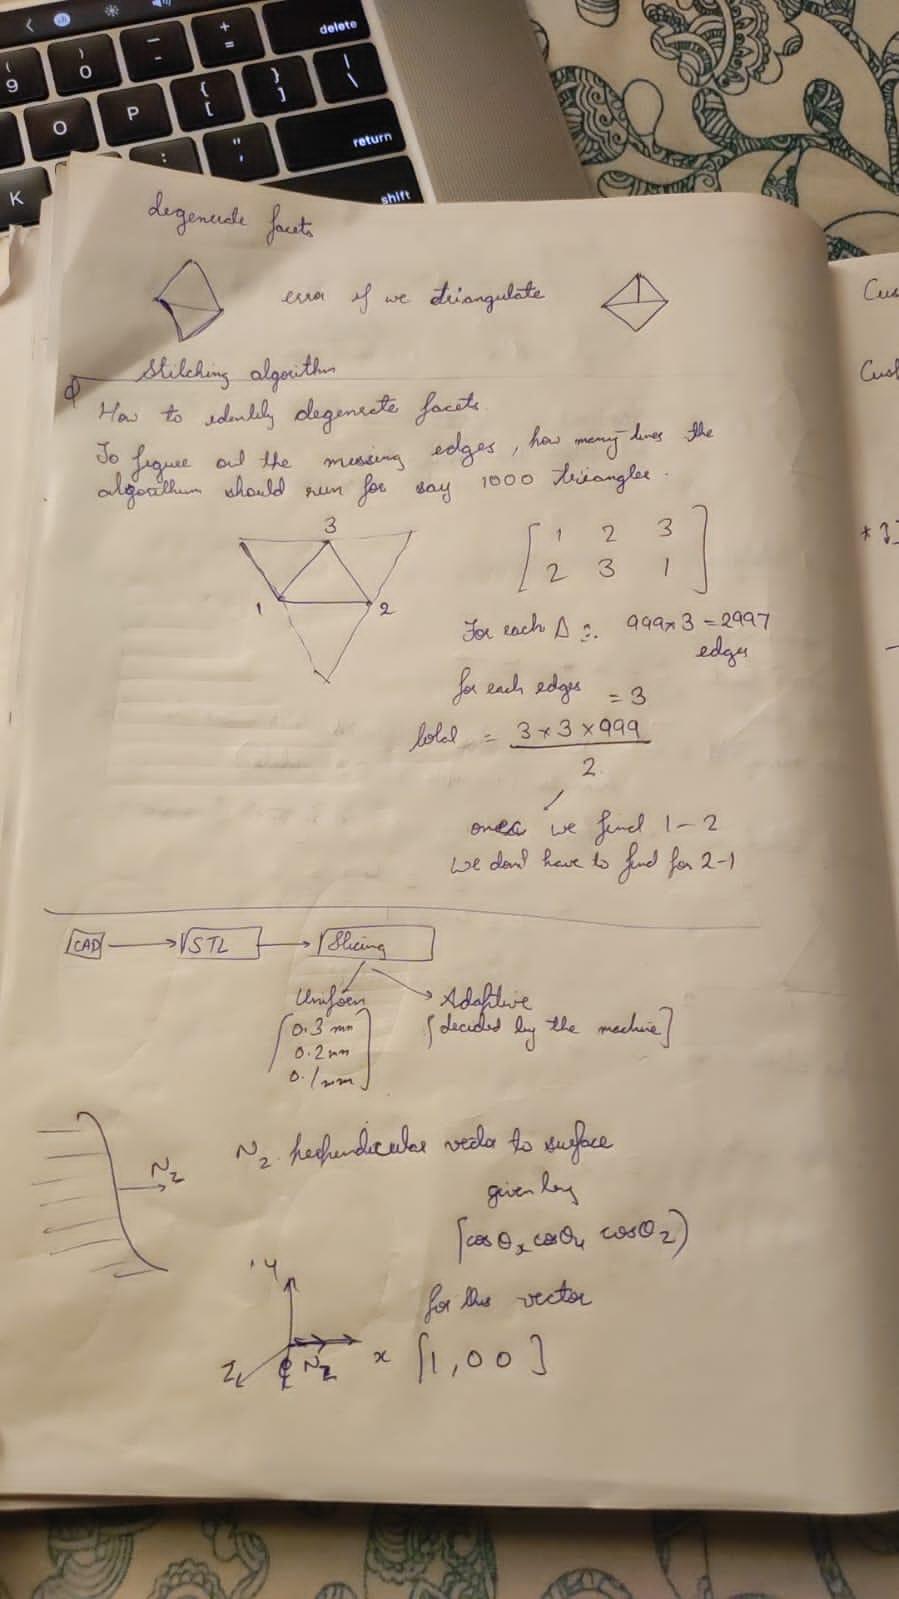 delete
9
0
-
+
=
O
P
{
[
}
]
\
return
K
:
"
'
shift
degenerate facets
error if we triangulate
Stitching algorithm
Q
How to identify degenerate facets.
To figure out the missing edges, how many times the
algorithm should run for say 1000 triangles.
3
1
2
[1 2 3
2 3 1]
For each Δ :. 999x3 = 2997
edges
for each edges = 3
total = 3 x 3 x 999
2
once we find 1-2
we don't have to find for 2-1
CAD → STL → Slicing
Uniform
0.3 mm
0.2mm
0.1mm
Adaptive
[decided by the machine]
Nz
Nz perpendicular vector to surface
given by
[cosθx cosθy cosθz)
for this vector
Y
Z
Nz
x
[1,00]
Cus
Cus